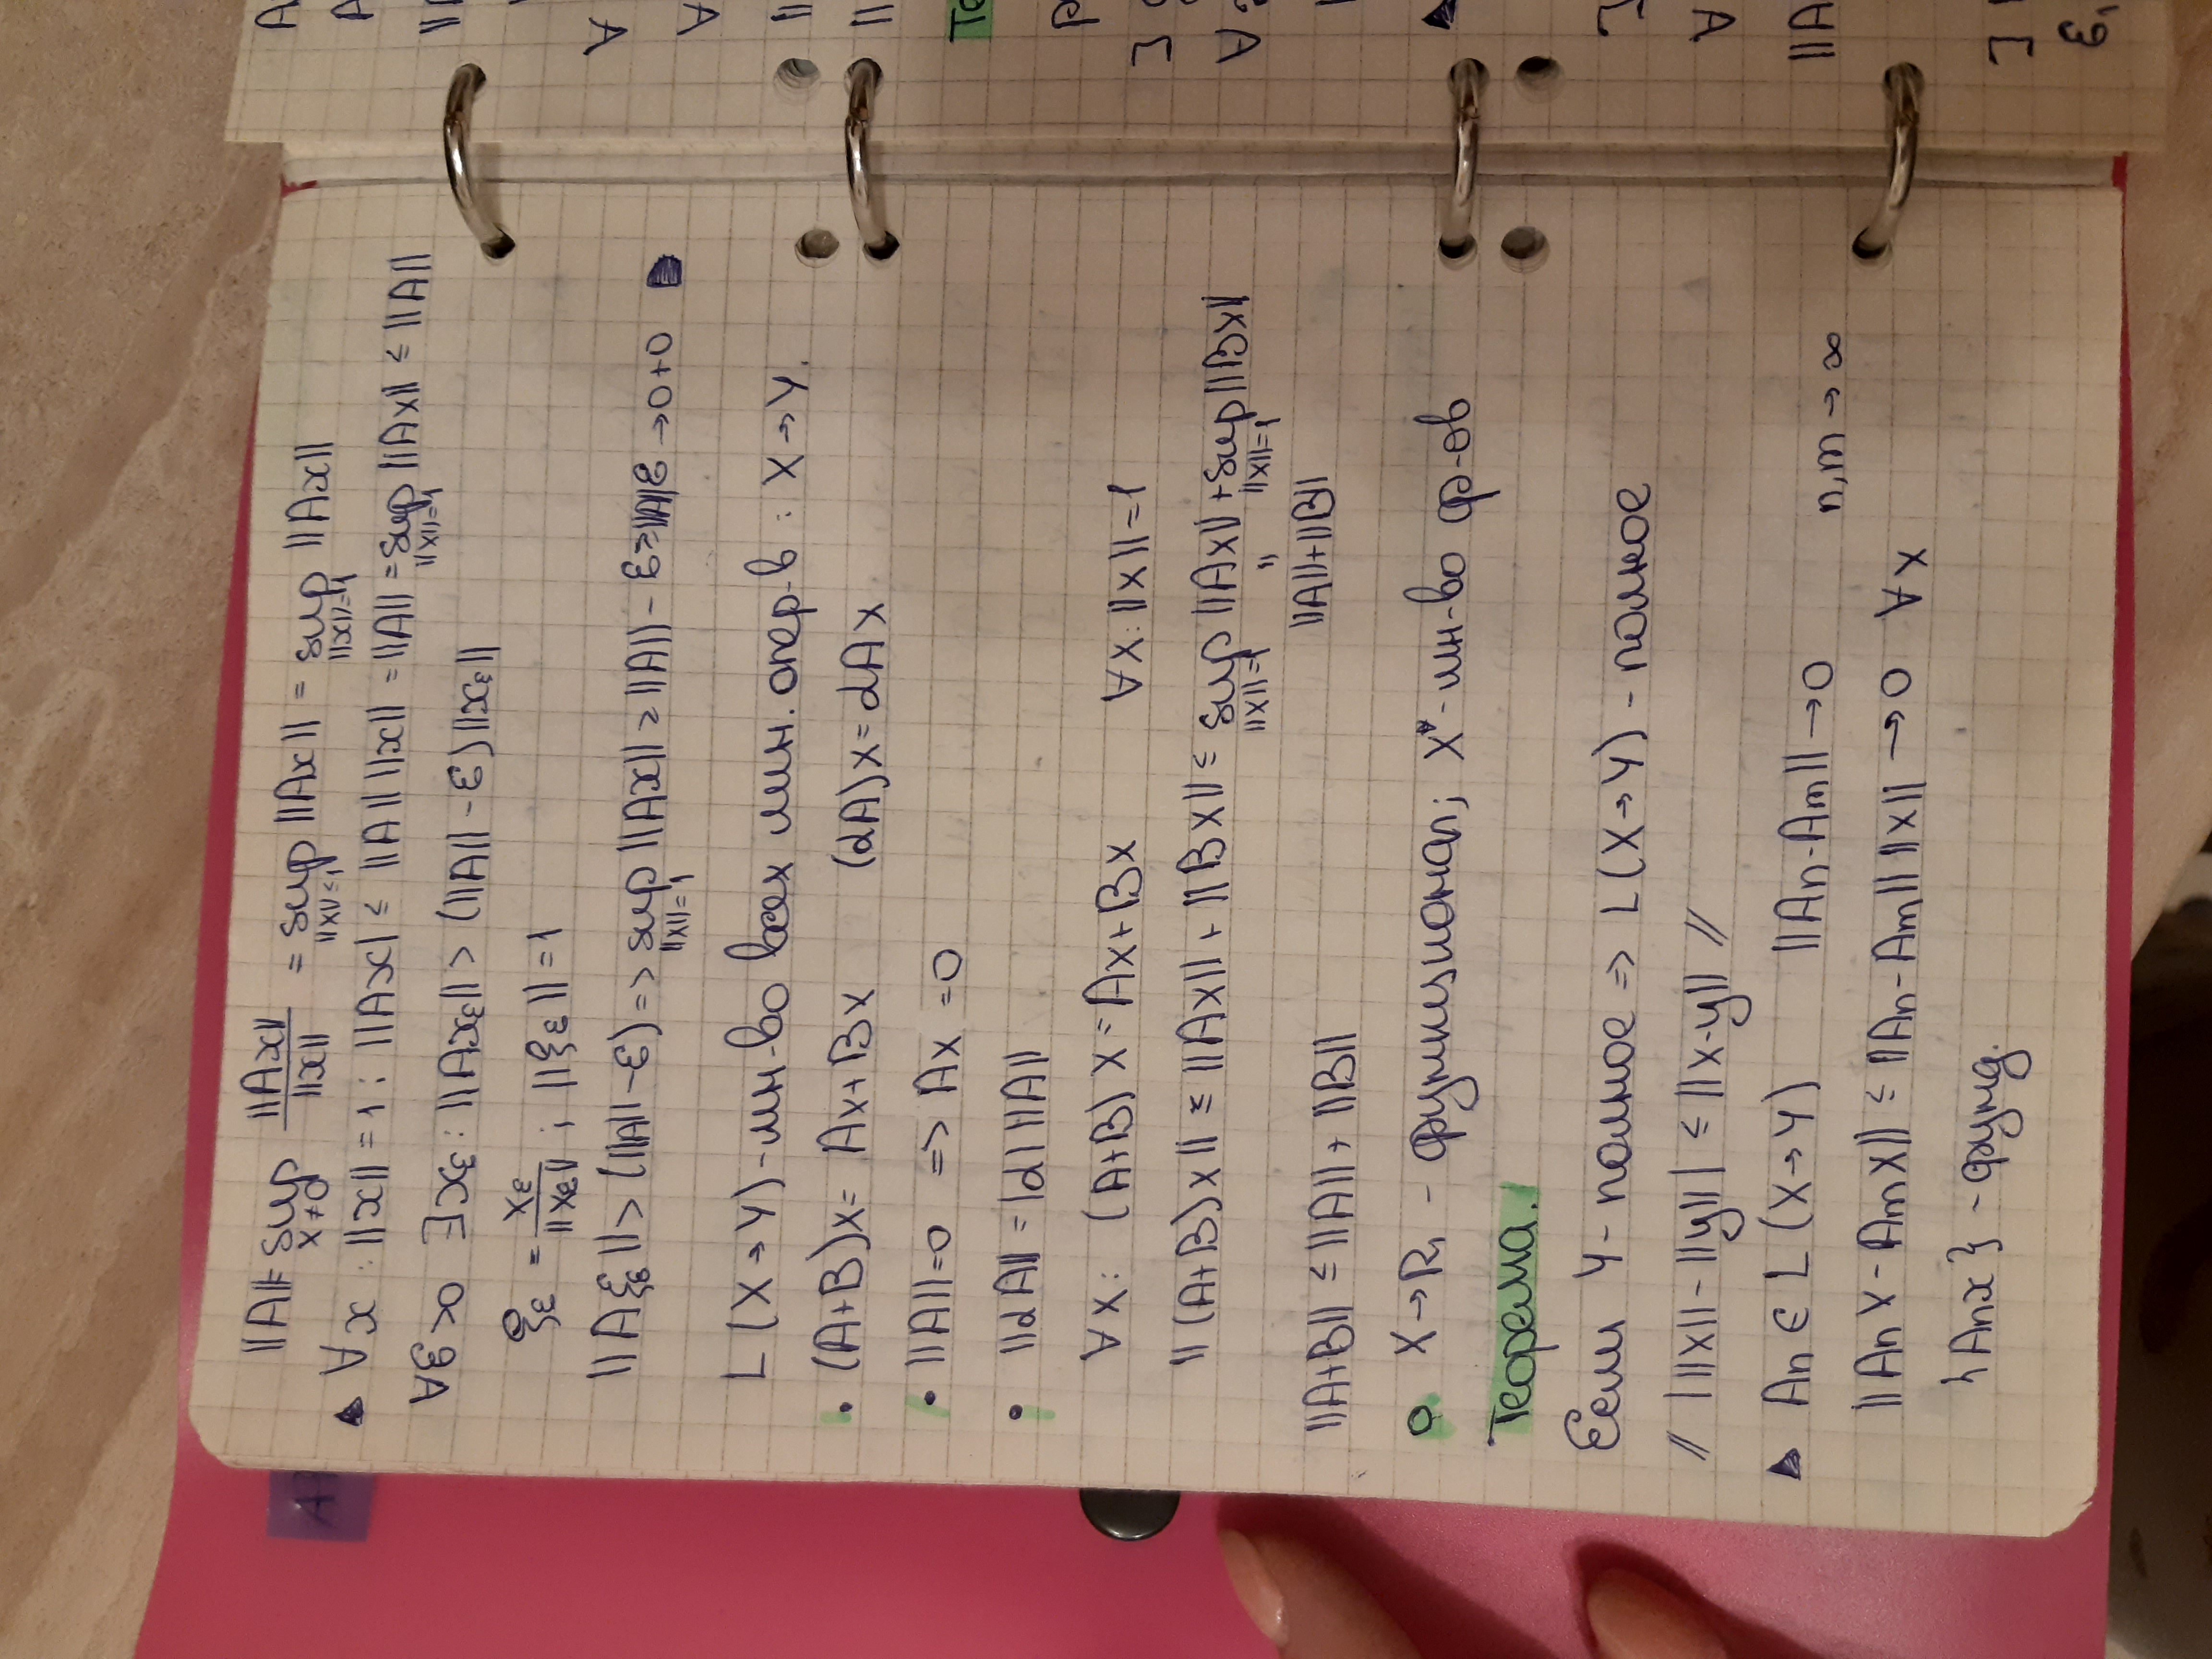 ||A|| = sup_{x≠0} ||Ax|| / ||x|| = sup_{||x||≤1} ||Ax|| = sup_{||x||=1} ||Ax||
▲ ∀x: ||x|| = 1: ||Ax| ≤ ||A|| ||x|| = ||A|| = sup_{||x||=1} ||Ax|| ≤ ||A||
∀ε>0 ∃xε: ||Axε|| > (||A|| - ε) ||xε||
ξε = xε / ||xε||; ||ξε|| = 1
||Aξε|| > (||A|| - ε) => sup_{||x||=1} ||Ax|| ≥ ||A|| - ε ε → 0+0
L (X → Y) - мн-во всех лин. опер-в: X → Y.
• (A+B)x = Ax + Bx (αA)x = αAx
• ||A|| = 0 => Ax = 0
• ||αA|| = |α| ||A||
∀x: (A+B)x = Ax + Bx ∀x: ||x|| = 1
||(A+B)x|| ≤ ||Ax|| + ||Bx|| ≤ sup_{||x||=1} ||Ax|| + sup_{||x||=1} ||Bx||
||A+B|| ≤ ||A|| + ||B|| ||A|| + ||B||
o X → R₁ - функционал; X* - мн-во ф-ов
Теорема.
Если Y - полное => L (X → Y) - полное
// | ||x|| - ||y|| | ≤ ||x-y|| //
▲ An ∈ L (X → Y) ||An - Am|| → 0 n,m → ∞
||An x - Am x|| ≤ ||An - Am|| ||x|| → 0 ∀x
{An x} - фунд.